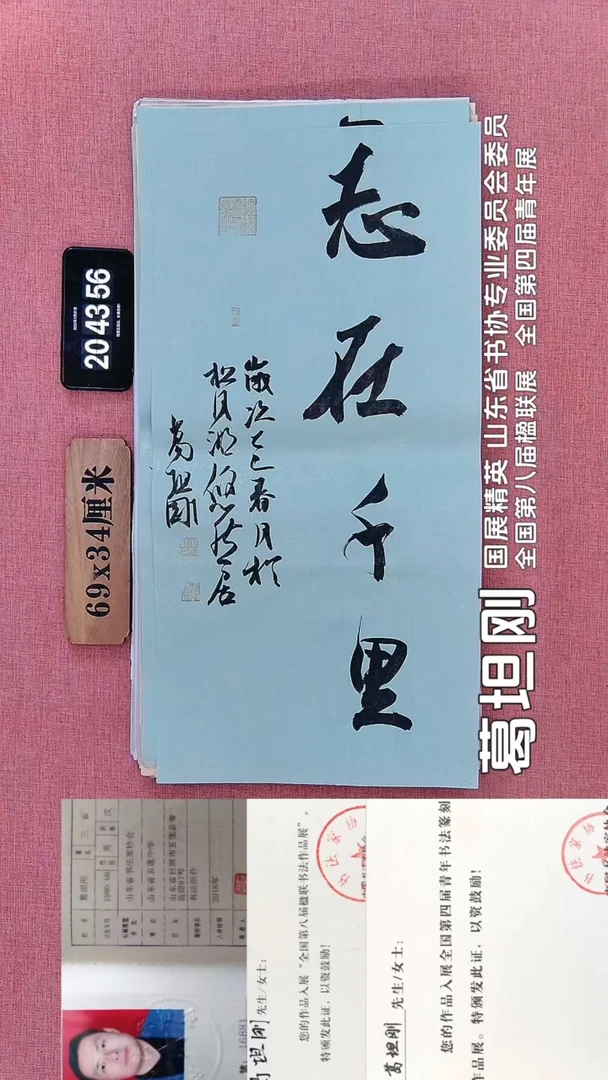 志在千里
歲次乙巳春月於
松月湖悠然居
葛坦刚
20 43 56
69x34厘米
葛坦刚
国展精英 山东省书协专业委员会委员
全国第八届楹联展 全国第四届青年展
山东省书法家协会
书法创作
2018年
葛坦刚 先生/女士:
您的作品入展“全国第八届楹联书法作品展”。
特颁发此证，以资鼓励!
葛坦刚 先生/女士:
您的作品入展全国第四届青年书法篆刻
作品展。特颁发此证，以资鼓励!